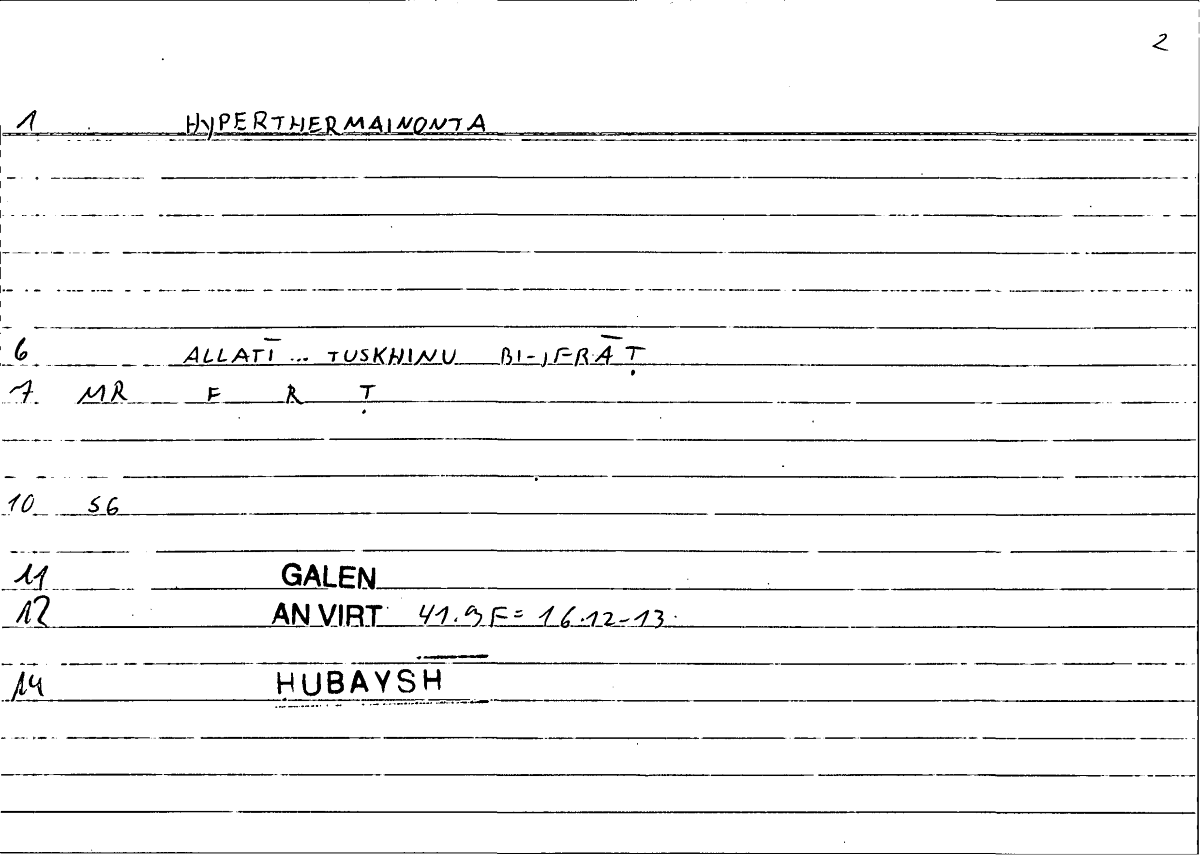 2
1 HYPERTHERMAINONTA
6 ALLATĪ ... TUSKHINU BI-IFRĀṬ
7 MR F R Ṭ
10 SG
11 GALEN
12 AN VIRT 41.9F=16.12-13.
14 HUBAYSH